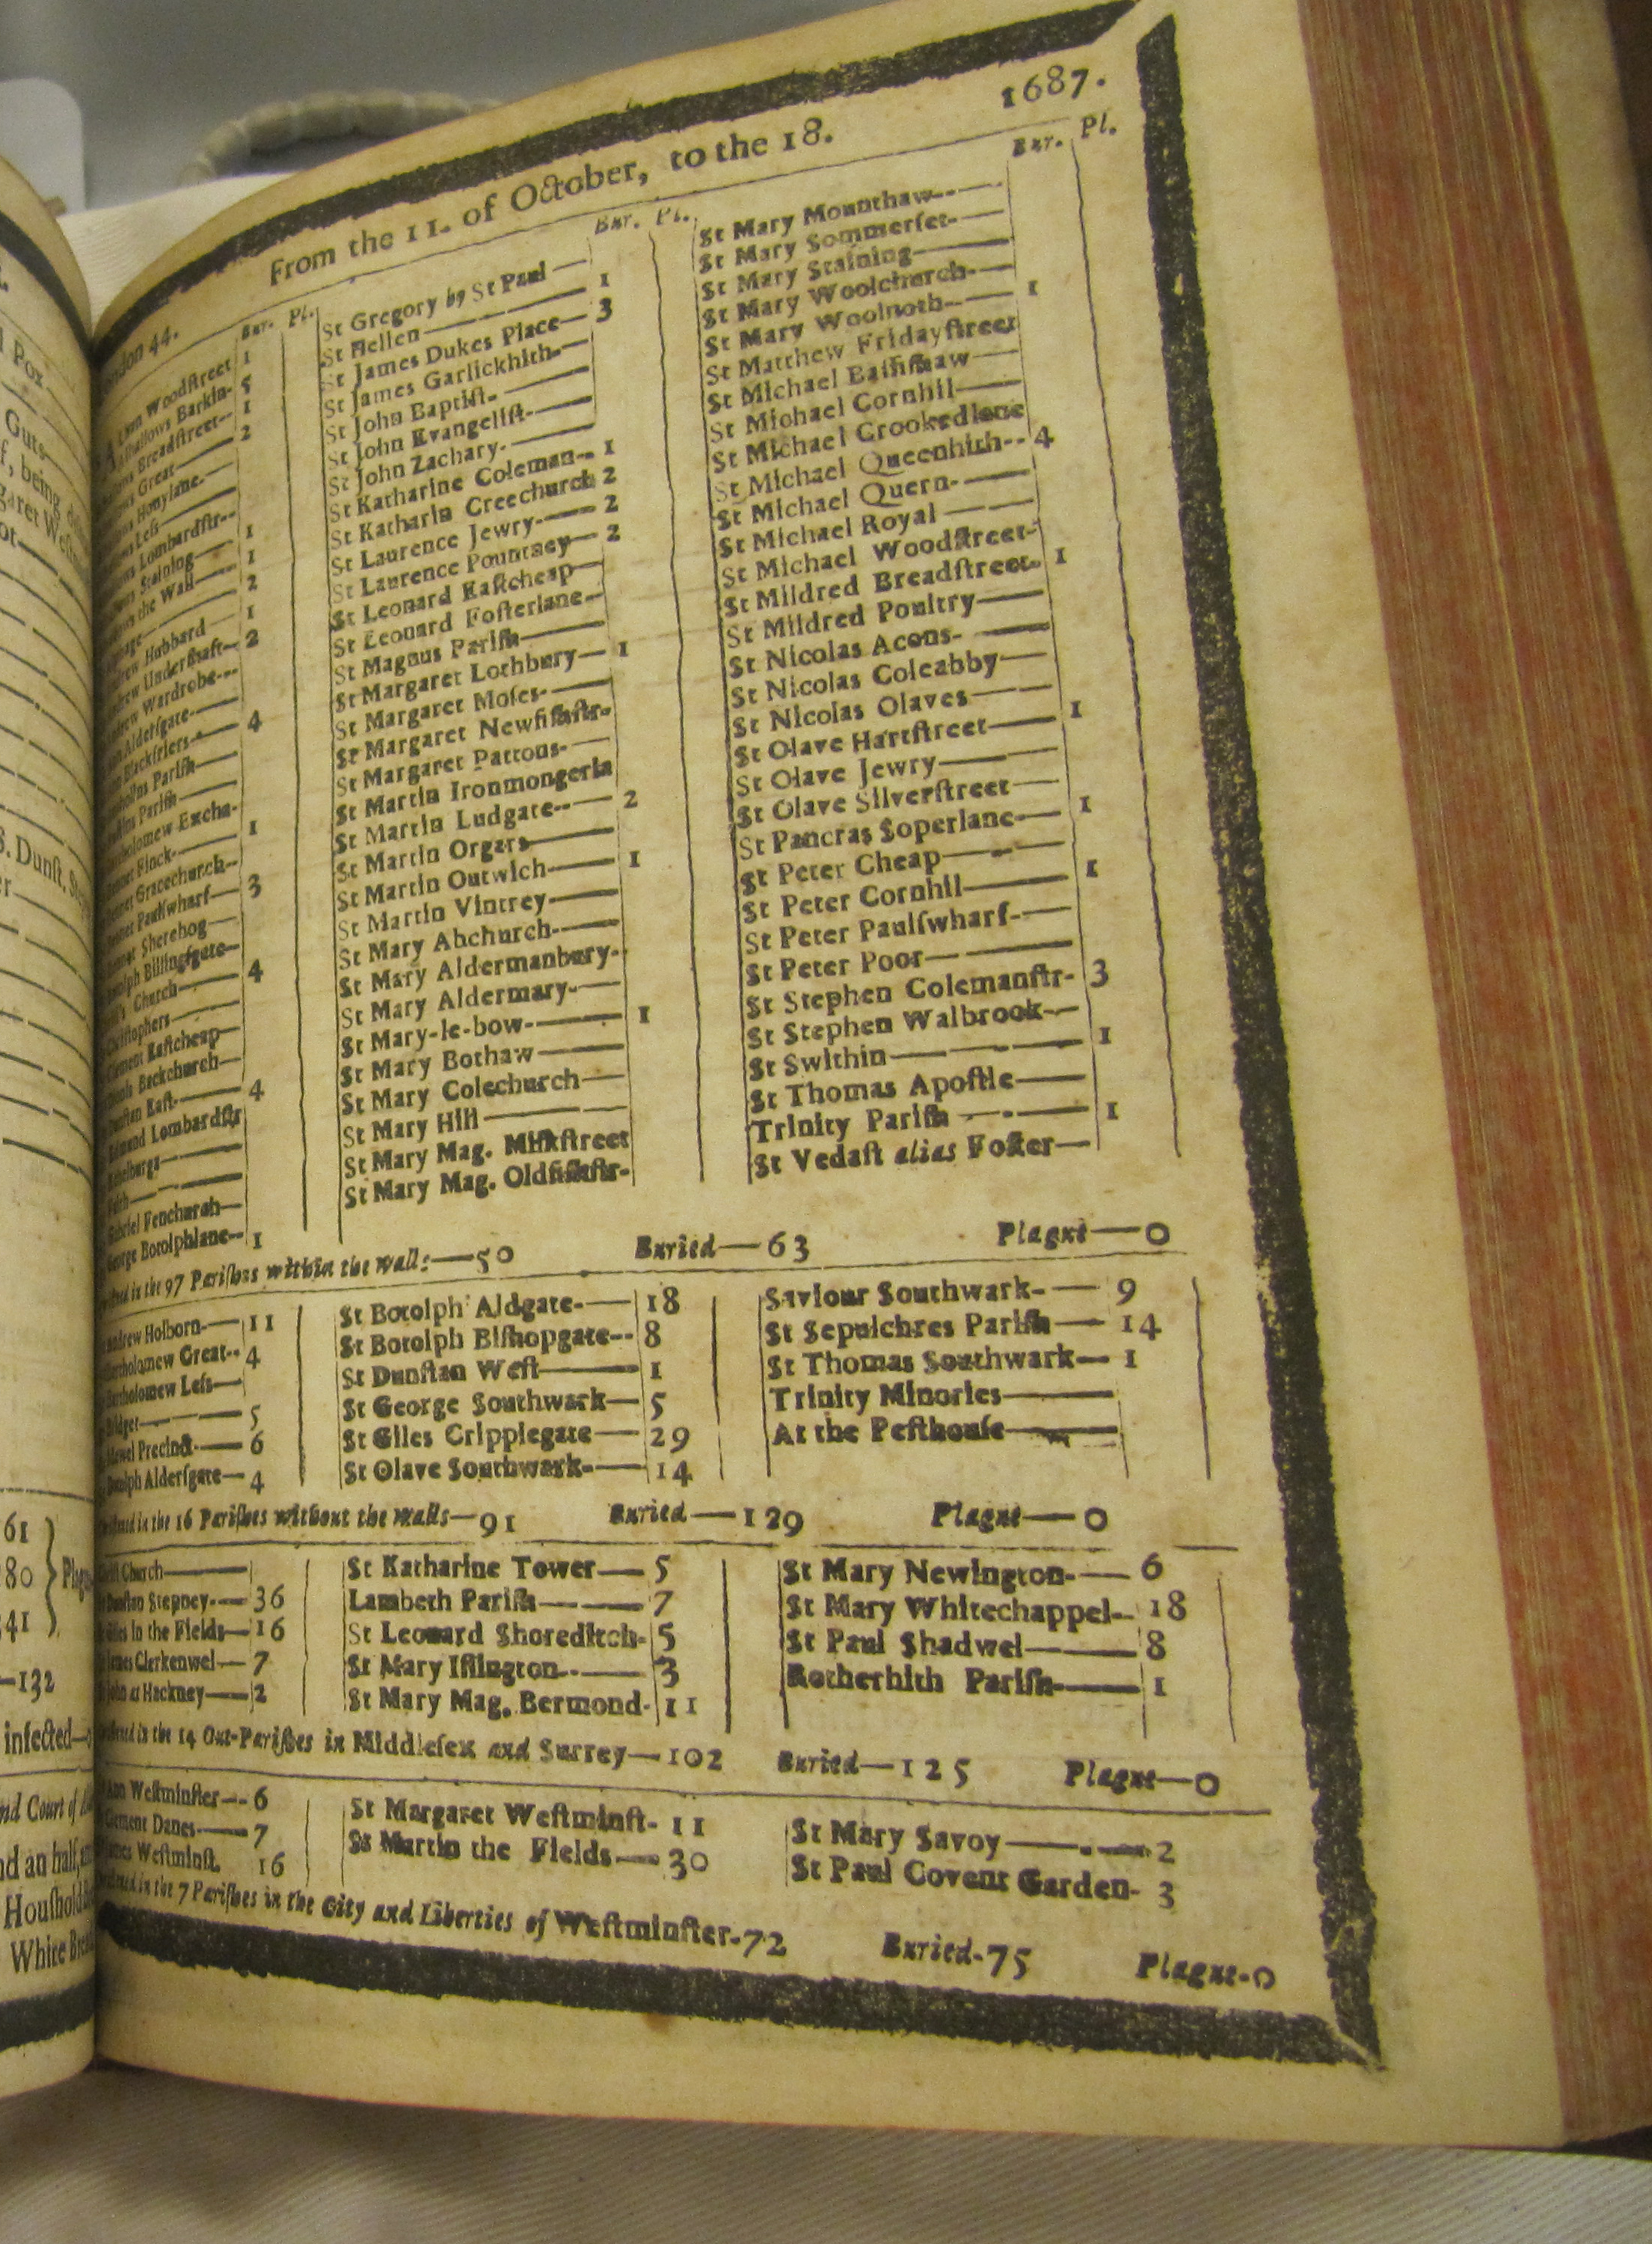 From the 11. of October, to the 18. 1687.
London 44. Bur. Pl.
Alban Woodſtreet 1
Alhallows Barkin- 5
Alhallows Breadſtreet- 1
Alhallows Great 2
Alhallows Honylane
Alhallows Leſs
Alhallows Lombardſtr--
Alhallows Staining 1
Alhallows the Wall 1
Alphage 2
Andrew Hubbard 1
Andrew Underſhaft 2
Andrew Wardrobe
Ann Alderſgate
Ann Blackfriers 4
Antholins Pariſh
Auſtins Pariſh
Bartholomew Excha-
Bennet Finck 1
Bennet Gracechurch
Bennet Paulſwharf 3
Bennet Sherehog
Botolph Billingſgate
Chriſt's Church 4
Chriſtophers
Clement Eaſtcheap
Dionis Backchurch
Dunſtan Eaſt 4
Edmund Lombardſtr
Ethelburga
Faith
Gabriel Fenchurch
George Botolphlane-- 1
Bur. Pl.
St Gregory by St Paul
St Hellen 1
St James Dukes Place 3
St James Garlickhith
St John Baptiſt
St John Evangeliſt
St John Zachary
St Katharine Coleman-- 1
St Katharin Creechurch 2
St Laurence Jewry 2
St Laurence Pountney 2
St Leonard Eaſtcheap
St Leonard Foſterlane
St Magnus Pariſh
St Margaret Lothbury 1
St Margaret Moſes
St Margaret Newfiſhſtr-
St Margaret Pattons
St Martin Ironmongerla
St Martin Ludgate 2
St Martin Orgars
St Martin Outwich 1
St Martin Vintrey
St Mary Abchurch
St Mary Aldermanbury
St Mary Aldermary
St Mary-le-bow 1
St Mary Bothaw
St Mary Colechurch
St Mary Hill
St Mary Mag. Milkſtreet
St Mary Mag. Oldfiſhſtr-
Bur. Pl.
St Mary Mounthaw
St Mary Sommerſet
St Mary Staining
St Mary Woolchurch
St Mary Woolnoth 1
St Matthew Fridayſtreet
St Michael Baſſiſhaw
St Michael Cornhil
St Michael Crookedlane
St Michael Queenhith-- 4
St Michael Quern
St Michael Royal
St Michael Woodſtreet
St Mildred Breadſtreet 1
St Mildred Poultry
St Nicolas Acons
St Nicolas Coleabby
St Nicolas Olaves
St Olave Hartſtreet 1
St Olave Jewry
St Olave Silverſtreet
St Pancras Soperlane 1
St Peter Cheap
St Peter Cornhil 1
St Peter Paulſwharf
St Peter Poor
St Stephen Colemanſtr- 3
St Stephen Walbrook
St Swithin 1
St Thomas Apoſtle
Trinity Pariſh 1
St Vedaſt alias Foſter
in the 97 Pariſhes within the Walls—50 Buried—63 Plague—0
Andrew Holborn 11
Bartholomew Great 4
Bartholomew Leſs
Bridget 5
Bridewel Precinct 6
Botolph Alderſgate 4
St Botolph Aldgate 18
St Botolph Biſhopgate-- 8
St Dunſtan Weſt 1
St George Southwark 5
St Giles Cripplegate 29
St Olave Southwark 14
Saviour Southwark 9
St Sepulchres Pariſh 14
St Thomas Southwark 1
Trinity Minories
At the Peſthouſe
in the 16 Pariſhes without the Walls—91 Buried—129 Plague—0
Chriſt Church
Dunſtan Stepney 36
Giles in the Fields 16
James Clerkenwel 7
John at Hackney 2
St Katharine Tower 5
Lambeth Pariſh 7
St Leonard Shoreditch 5
St Mary Iſlington 3
St Mary Mag. Bermond- 11
St Mary Newington 6
St Mary Whitechappel 18
St Paul Shadwel 8
Rotherhith Pariſh 1
in the 14 Out-Pariſhes in Middleſex and Surrey—102 Buried—125 Plague—0
Ann Weſtminſter 6
Clement Danes 7
James Weſtminſt. 16
St Margaret Weſtminſt- 11
St Martin the Fields 30
St Mary Savoy 2
St Paul Covent Garden- 3
in the 7 Pariſhes in the City and Liberties of Weſtminſter-72 Buried-75 Plague-0
Pox
Guts
being
S. Dunſt.
61
80
41
—132
infected
and Court of
and an half
White